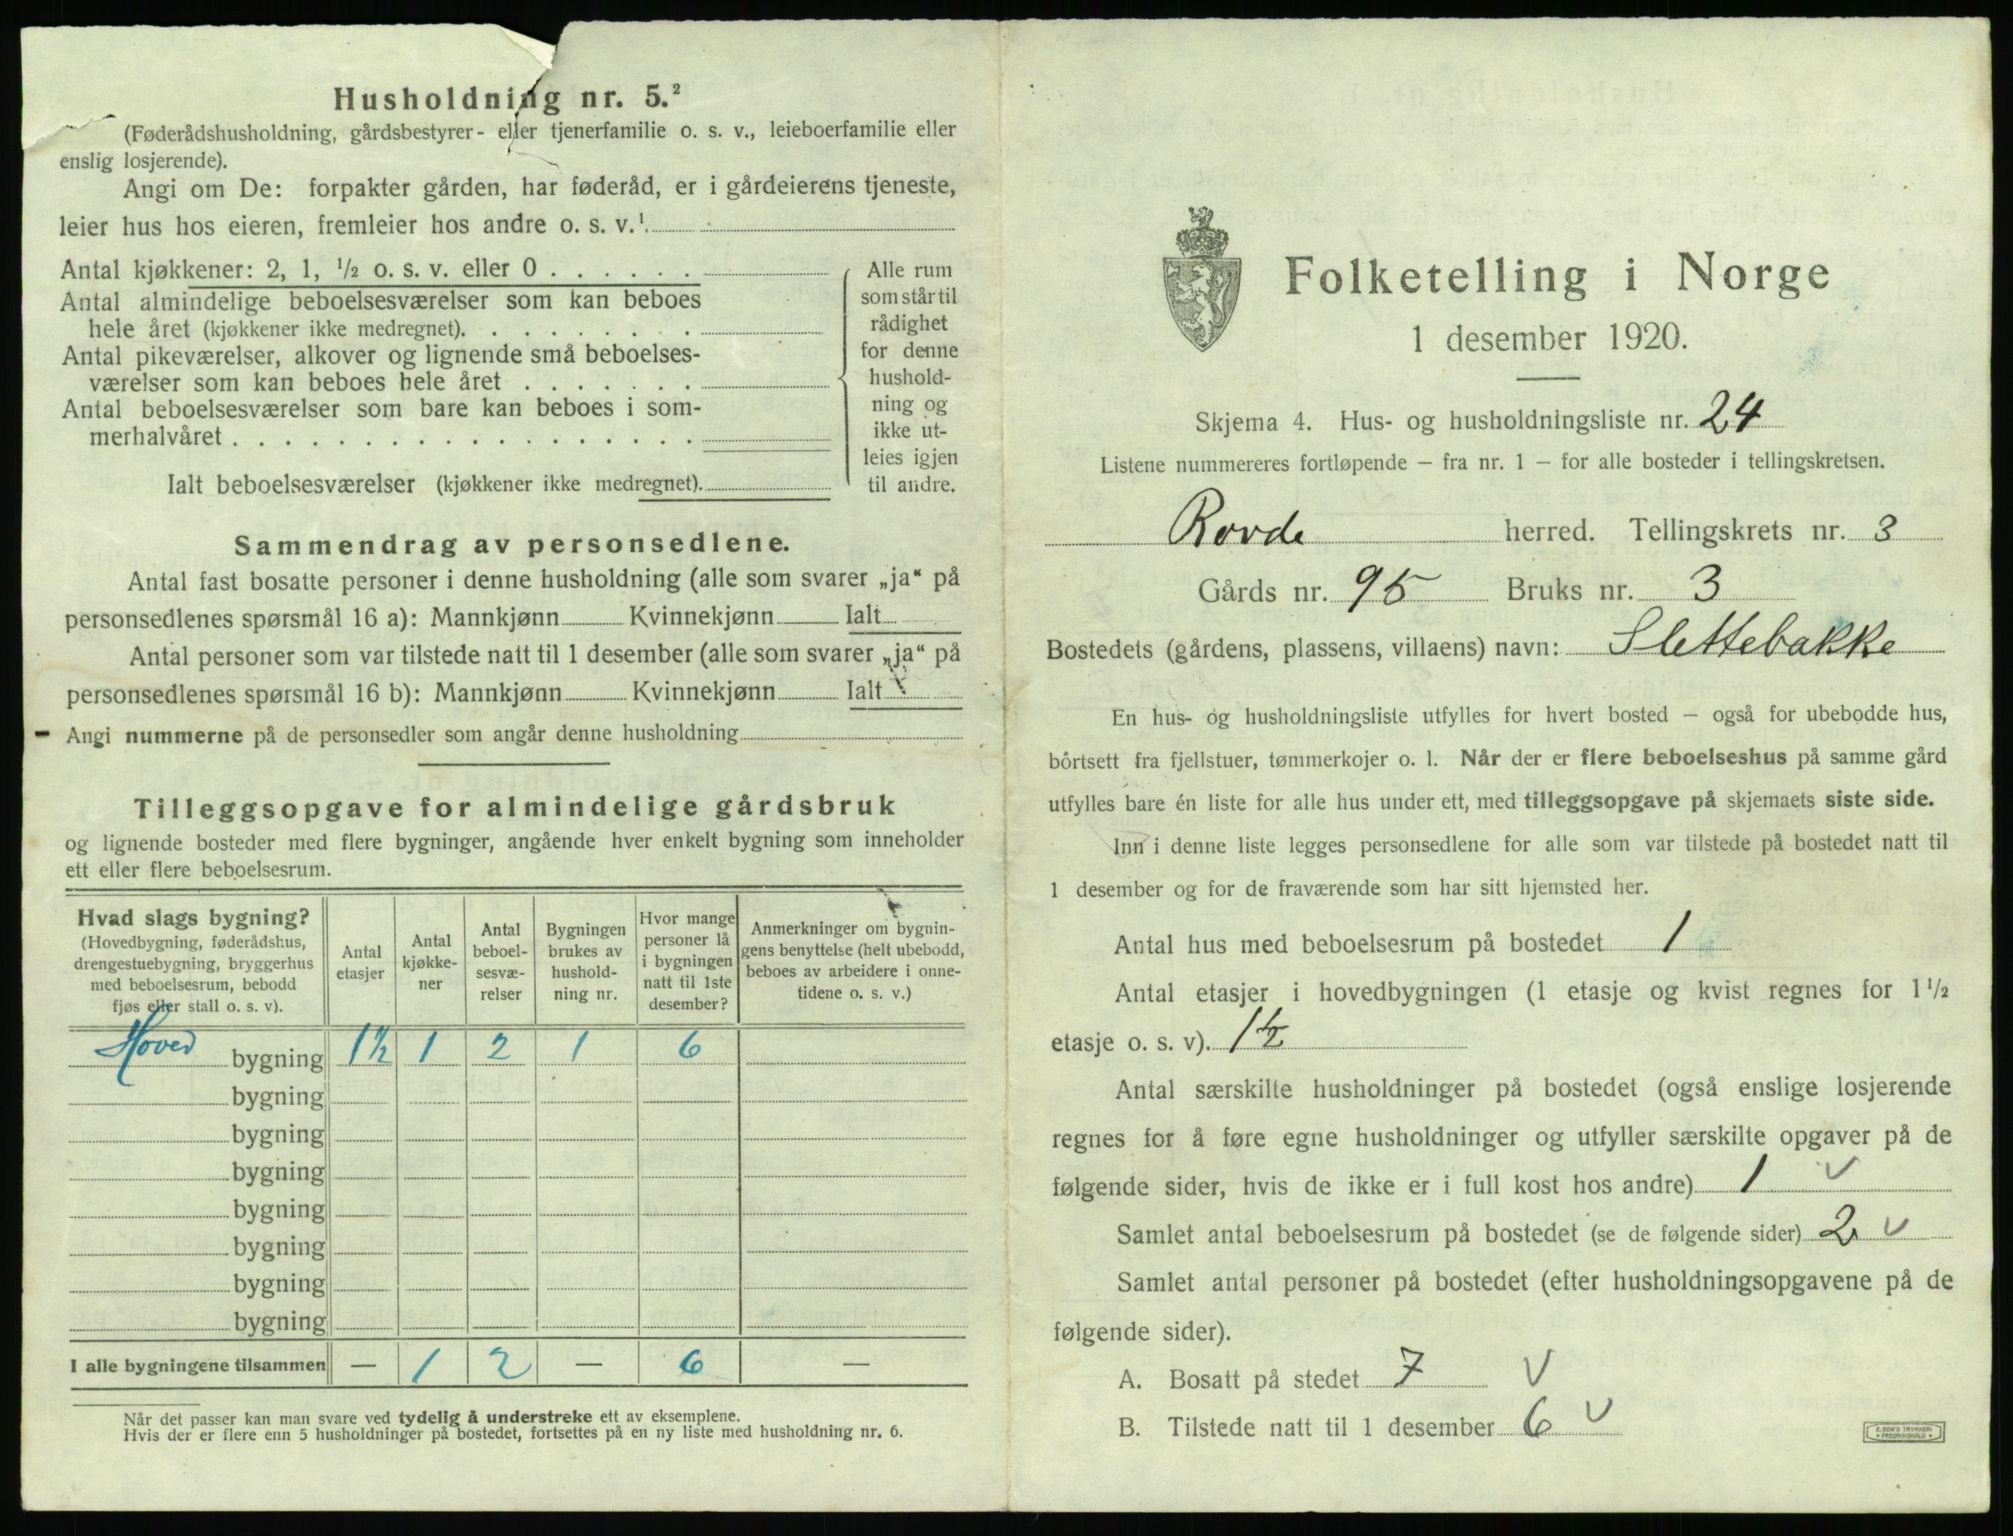 Husholdning nr. 5.²
(Føderådshusholdning, gårdsbestyrer- eller tjenerfamilie o. s. v., leieboerfamilie eller
enslig losjerende).
Angi om De: forpakter gården, har føderåd, er i gårdeierens tjeneste,
leier hus hos eieren, fremleier hos andre o. s. v.¹
Antal kjøkkener: 2, 1, ½ o. s. v. eller 0 . . . . . .
Antal almindelige beboelsesværelser som kan beboes
hele året (kjøkkener ikke medregnet). . . . . . . . .
Antal pikeværelser, alkover og lignende små beboelses-
værelser som kan beboes hele året . . . . . . .
Antal beboelsesværelser som bare kan beboes i som-
merhalvåret . . . . . . . . . . . . . . . . . .
Ialt beboelsesværelser (kjøkkener ikke medregnet).
Alle rum
som står til
rådighet
for denne
hushold-
ning og
ikke ut-
leies igjen
til andre.
Sammendrag av personsedlene.
Antal fast bosatte personer i denne husholdning (alle som svarer „ja“ på
personsedlenes spørsmål 16 a): Mannkjønn Kvinnekjønn Ialt
Antal personer som var tilstede natt til 1 desember (alle som svarer „ja“ på
personsedlenes spørsmål 16 b): Mannkjønn Kvinnekjønn Ialt
Angi nummerne på de personsedler som angår denne husholdning
Tilleggsopgave for almindelige gårdsbruk
og lignende bosteder med flere bygninger, angående hver enkelt bygning som inneholder
ett eller flere beboelsesrum.
Hvad slags bygning?
(Hovedbygning, føderådshus,
drengestuebygning, bryggerhus
med beboelsesrum, bebodd
fjøs eller stall o. s. v).
Antal
etasjer
Antal
kjøkke-
ner
Antal
beboel-
sesvæ-
relser
Bygningen
brukes av
hushold-
ning nr.
Hvor mange
personer lå
i bygningen
natt til 1ste
desember?
Anmerkninger om bygnin-
gens benyttelse (helt ubebodd,
beboes av arbeidere i onne-
tidene o. s. v.)
Hoved bygning 1½ 1 2 1 6
bygning
bygning
bygning
bygning
bygning
bygning
bygning
I alle bygningene tilsammen — 1 2 — 6 —
Når det passer kan man svare ved tydelig å understreke ett av eksemplene.
Hvis der er flere enn 5 husholdninger på bostedet, fortsettes på en ny liste med husholdning nr. 6.
Folketelling i Norge
1 desember 1920.
Skjema 4. Hus- og husholdningsliste nr. 24
Listene nummereres fortløpende — fra nr. 1 — for alle bosteder i tellingskretsen.
Rovde herred. Tellingskrets nr. 3
Gårds nr. 95 Bruks nr. 3
Bostedets (gårdens, plassens, villaens) navn: Slettebakke
En hus- og husholdningsliste utfylles for hvert bosted — også for ubebodde hus,
bortsett fra fjellstuer, tømmerkojer o. l. Når der er flere beboelseshus på samme gård
utfylles bare én liste for alle hus under ett, med tilleggsopgave på skjemaets siste side.
Inn i denne liste legges personsedlene for alle som var tilstede på bostedet natt til
1 desember og for de fraværende som har sitt hjemsted her.
Antal hus med beboelsesrum på bostedet 1
Antal etasjer i hovedbygningen (1 etasje og kvist regnes for 1 ½
etasje o. s. v). 1½
Antal særskilte husholdninger på bostedet (også enslige losjerende
regnes for å føre egne husholdninger og utfyller særskilte opgaver på de
følgende sider, hvis de ikke er i full kost hos andre) 1 v
Samlet antal beboelsesrum på bostedet (se de følgende sider) 2 v
Samlet antal personer på bostedet (efter husholdningsopgavene på de
følgende sider).
A. Bosatt på stedet 7 v
B. Tilstede natt til 1 desember 6 v
E. SEM'S TRYKKERI
FREDRIKSHALD